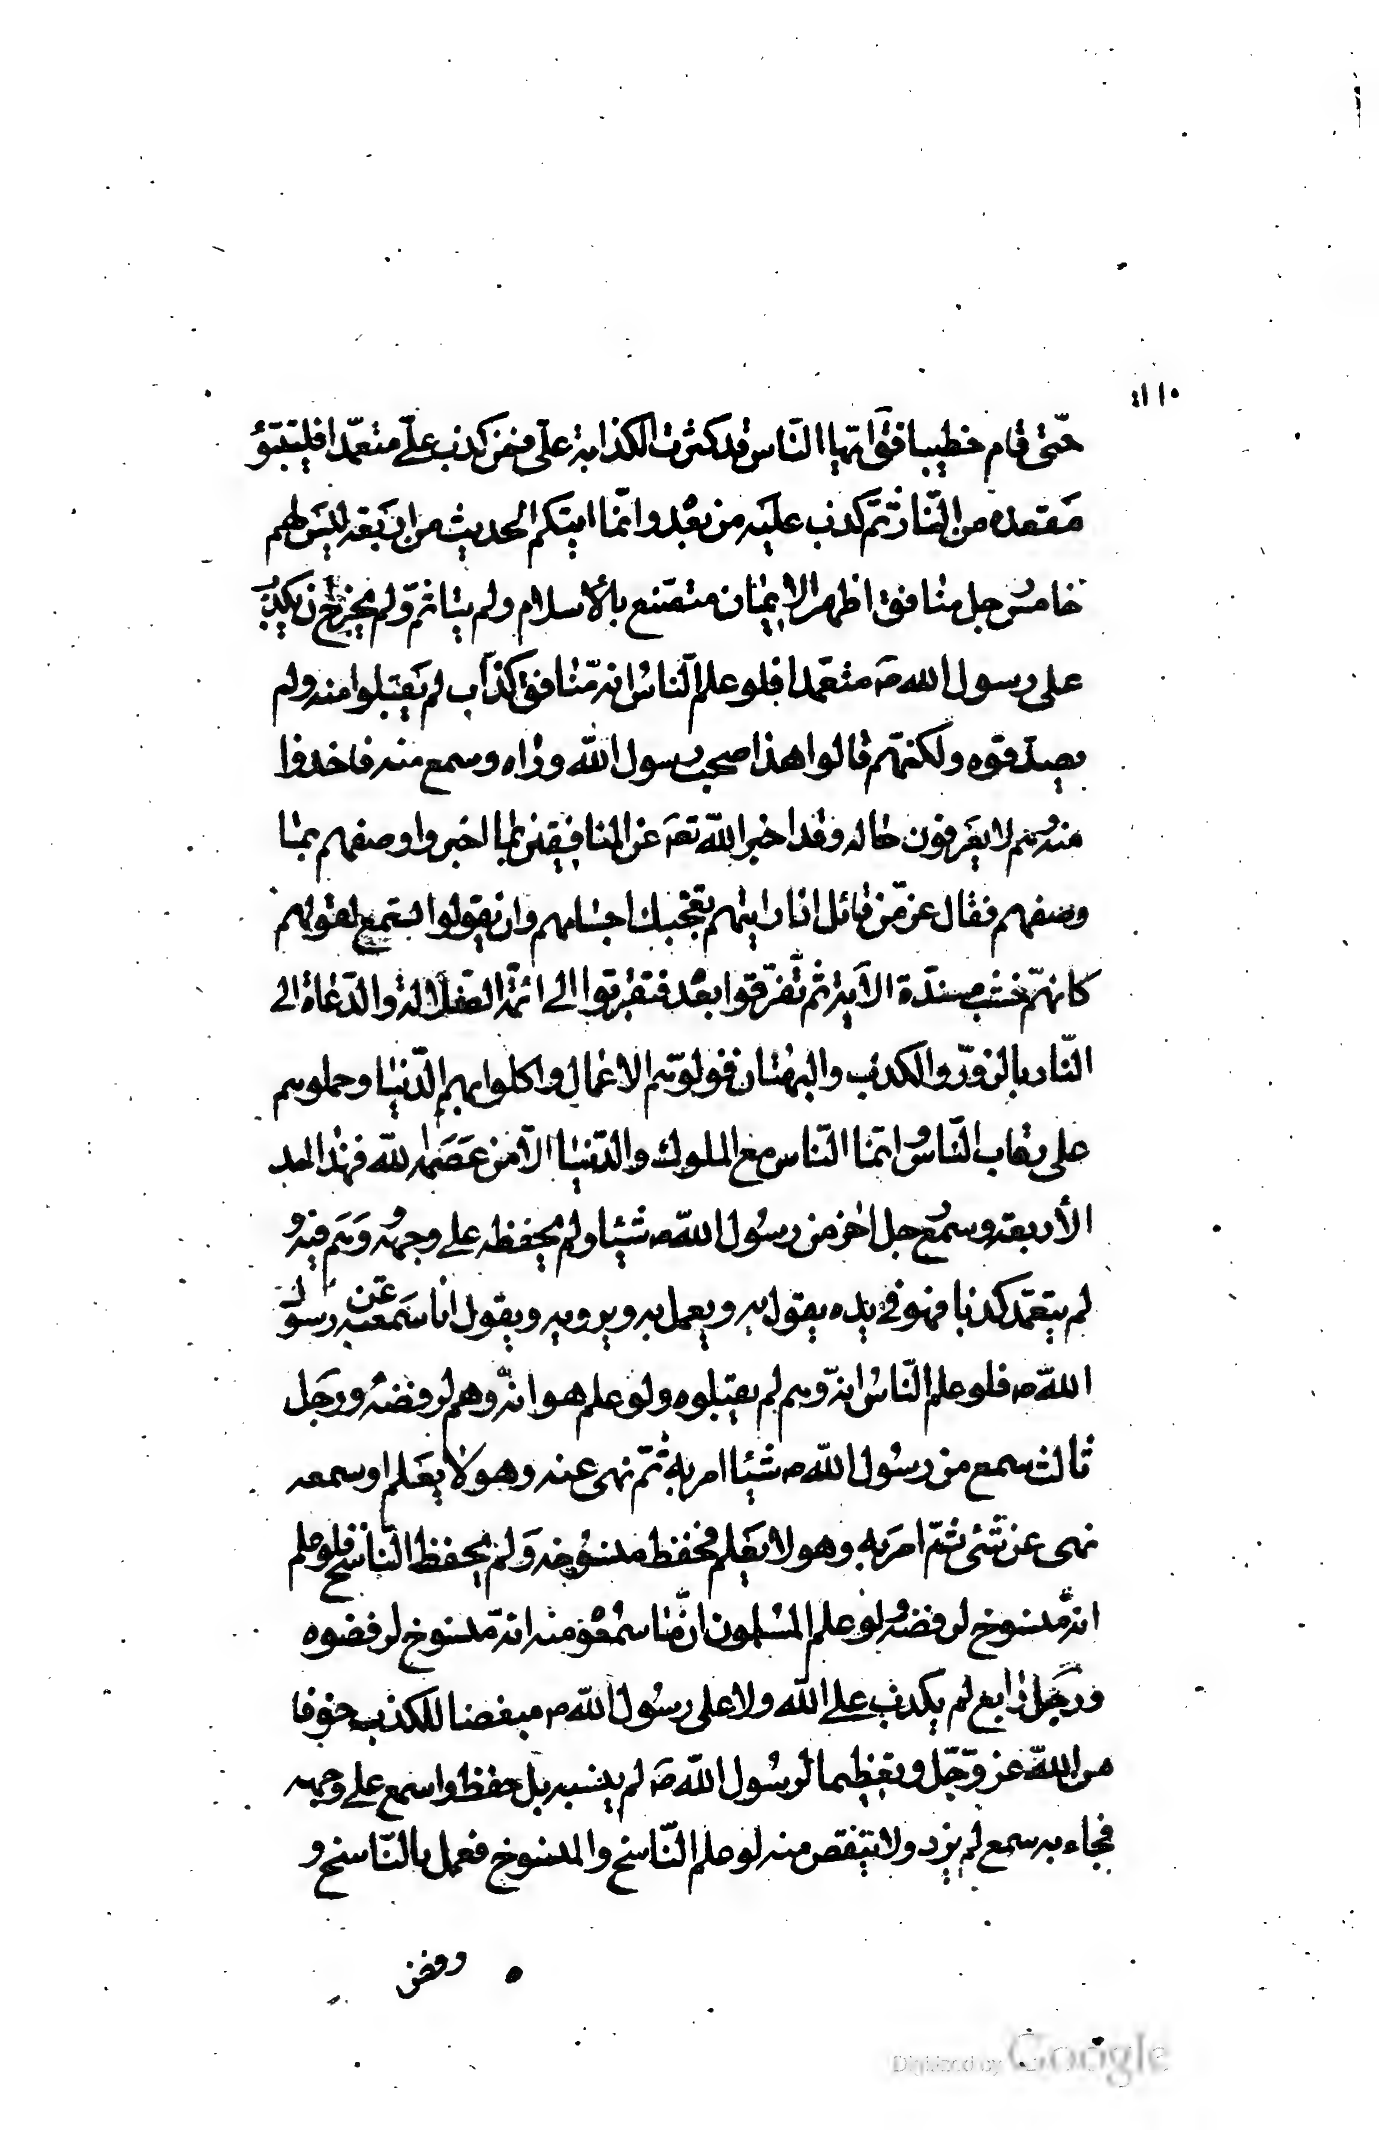 حتّى قام خطيبا فقٓ ايّها النّاس قد كثرت الكذابة علّى فمن كذب علّى متعمّدا فليتبّوُ
مَقعده من النّار ثمّ كذب عليَه من بعْد وانّما اٮتكم الحديث من اربَعة ليسَ لهم
خامس رجل منافق اظهر الايمان متصّنع بالأسلام ولم يتاثم ولم يخرج ان يكذب
على رسول الله صَ متعمّدا فلو علم النّاسُ انه مّنافق كذاب لم يَقبَلوا منه ولم
يصدّقوه ولكنهّم قالوا هذا صحب رسول اللّه وراه وسمع منه فاخذوا
منه وهم لا يعَرفون حاله وقد اخبر اللّه تعَه عن المنافقين بما اخبر واوصفهم بما
وصفهم فقال عزّ من قائل اذا رايتهم تعَجبك اجسامهم وان يقولوا لستمع لقولهم
كانهّم خشب مسندّة الآية ثم تّفرّقوا بعْد فتقرّبوا الى ائمّة الضّلالة والدّعاة الى
النّار بالزوّر والكذب والبهْتان فولوّهم الاعَمال واكلوا بهم الدّنيا وحملوهم
على رقاب النّاس وُانمّا النّاس مع الملوك والدّنيا الاّ من عَصَمه اللّه فهذا احد
الأربعة وسمع رجل اخر من رسُول اللّه ص شيئا ولم يحفظه على وجهه وَوَهم فيه وُ
لم يتعمّد كذبا فهو فى يده يقول به ويعمل به ويرويه ويقول انا سَمعته عن رسول
اللّه ص فلو علم النّاسُ انهّ وهم لم يقبلوه ولو علم هو انهّ وهم لرفضهُ ورجَل
ثالث سمع من رسُول اللّه ص شيئا امر به ثمّ نهى عنه وهو لا يعَلم او سمعه
نهى عن شئى ثمّ امرَ به وهو لا يعَلم فحفظ منسُوخه وَلم يحفظ النّاسخ فلو علم
انهّ منسوخ لرفضه وُلو علم المسُلمون انّ ما سمُعْوه منه انهّ منسوخ لرفضوه
ورجَل رابع لم يكذب على اللّه ولا على رسُول اللّه ص مبغضا للكذب خوفا
من اللّه عز وّجّل وتعَظيما لرسُول اللّه صَ لم ينسه بلَ حفظ واسمع على وجهه
فجاء به سمع لم يزد ولا ينقص منه لو علم النّاسخ والمنسوخ فعمل بالنّاسخ و
ورفض
Digitized by Google